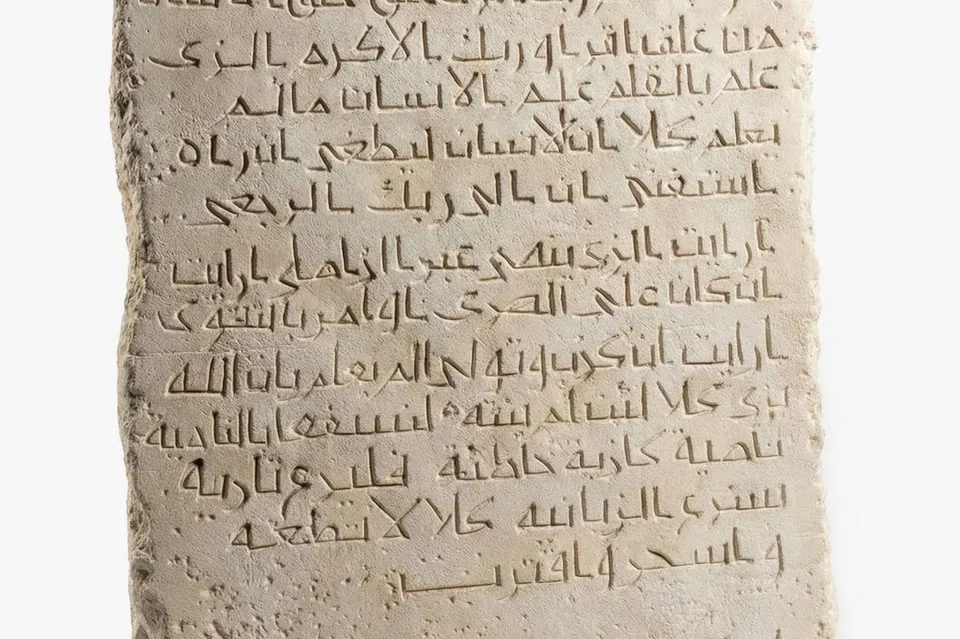 من علق اقرا وربك الاكرم الذى
علم بالقلم علم الانسان ما لم
يعلم كلا ان الانسان ليطغى ان راه
استغنى ان الى ربك الرجعى
ارايت الذى ينهى عبدا اذا صلى ارايت
ان كان على الهدى او امر بالتقوى
ارايت ان كذب وتولى الم يعلم بان الله
يرى كلا لئن لم ينته لنسفعا بالناصية
ناصية كاذبة خاطئة فليدع ناديه
سندع الزبانية كلا لا تطعه
واسجد واقترب